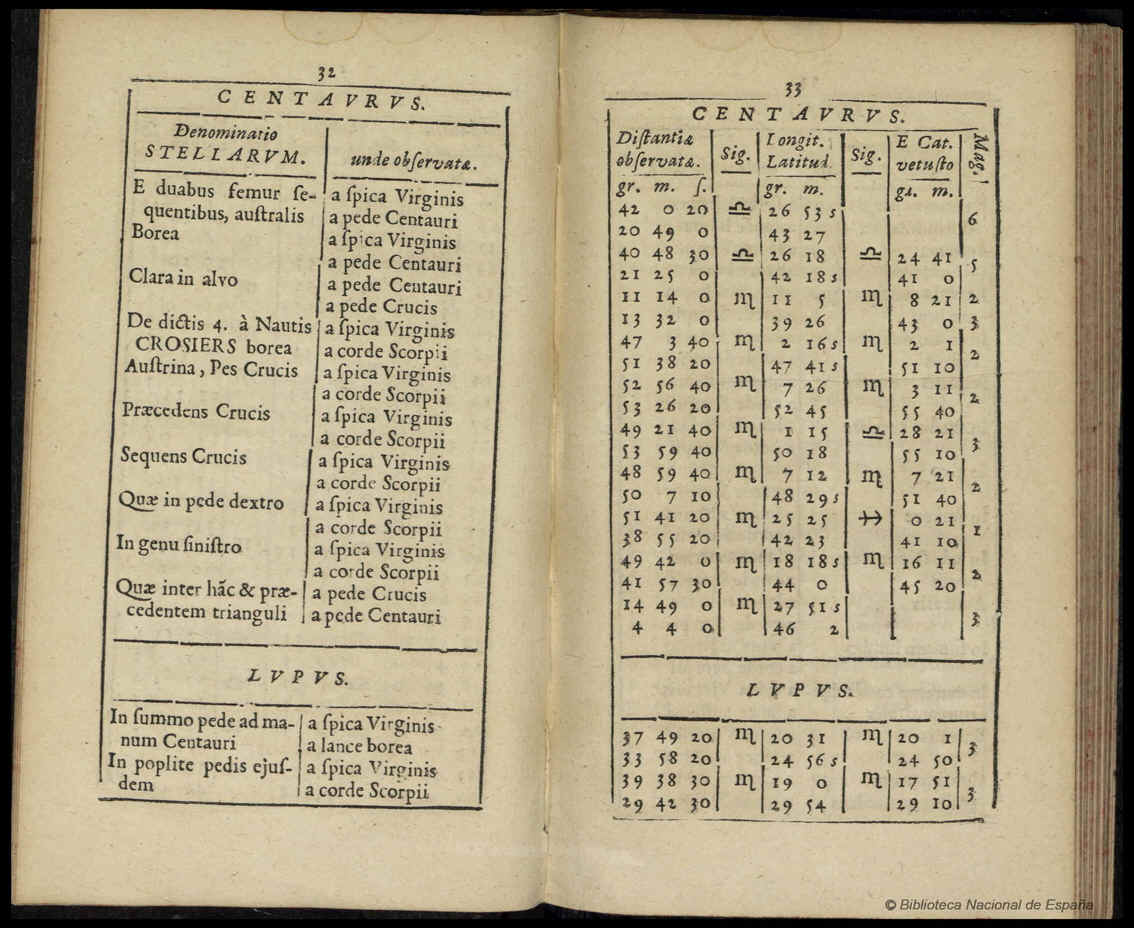 32
CENTAVRVS.
Denominatio
STELLARVM.
unde observatæ.
E duabus femur ſe-
quentibus, auſtralis
Borea
Clara in alvo
De dictis 4. à Nautis
CROSIERS borea
Auſtrina, Pes Crucis
Præcedens Crucis
Sequens Crucis
Quæ in pede dextro
In genu ſiniſtro
Quæ inter hãc & præ-
cedentem trianguli
a ſpica Virginis
a pede Centauri
a ſpica Virginis
a pede Centauri
a pede Centauri
a pede Crucis
a ſpica Virginis
a corde Scorpii
a ſpica Virginis
a corde Scorpii
a ſpica Virginis
a corde Scorpii
a ſpica Virginis
a corde Scorpii
a ſpica Virginis
a corde Scorpii
a ſpica Virginis
a corde Scorpii
a pede Crucis
a pede Centauri
LVPVS.
In ſummo pede ad ma-
num Centauri
In poplite pedis ejuſ-
dem
a ſpica Virginis
a lance borea
a ſpica Virginis
a corde Scorpii
33
CENTAVRVS.
Diſtantiæ
obſervatæ.
Sig.
Longit.
Latitud.
Sig.
E Cat.
vetuſto
Mag.
gr. m. ſ. gr. m. gr. m.
42 0 20 ♎ 26 53 s 6
20 49 0 43 27
40 48 30 ♎ 26 18 ♎ 24 41 5
21 25 0 42 18 s 41 0
11 14 0 ♏ 11 5 ♏ 8 21 2
13 32 0 39 26 43 0 3
47 3 40 ♏ 2 16 s ♏ 2 1 2
51 38 20 47 41 s 51 10
52 56 40 ♏ 7 26 ♏ 3 11 2
53 26 20 52 45 55 40
49 21 40 ♏ 1 15 ♎ 28 21 3
53 59 40 50 18 55 10
48 59 40 ♏ 7 12 ♏ 7 21 2
50 7 10 48 29 s 51 40
51 41 20 ♏ 25 25 ♐ 0 21 1
38 55 20 42 23 41 10
49 42 0 ♏ 18 18 s ♏ 16 11 2
41 57 30 44 0 45 20
14 49 0 ♏ 27 51 s 3
4 4 0 46 2
LVPVS.
37 49 20 ♏ 20 31 ♏ 20 1 3
33 58 20 24 56 s 24 50
39 38 30 ♏ 19 0 ♏ 17 51 3
29 42 30 29 54 29 10
© Biblioteca Nacional de España